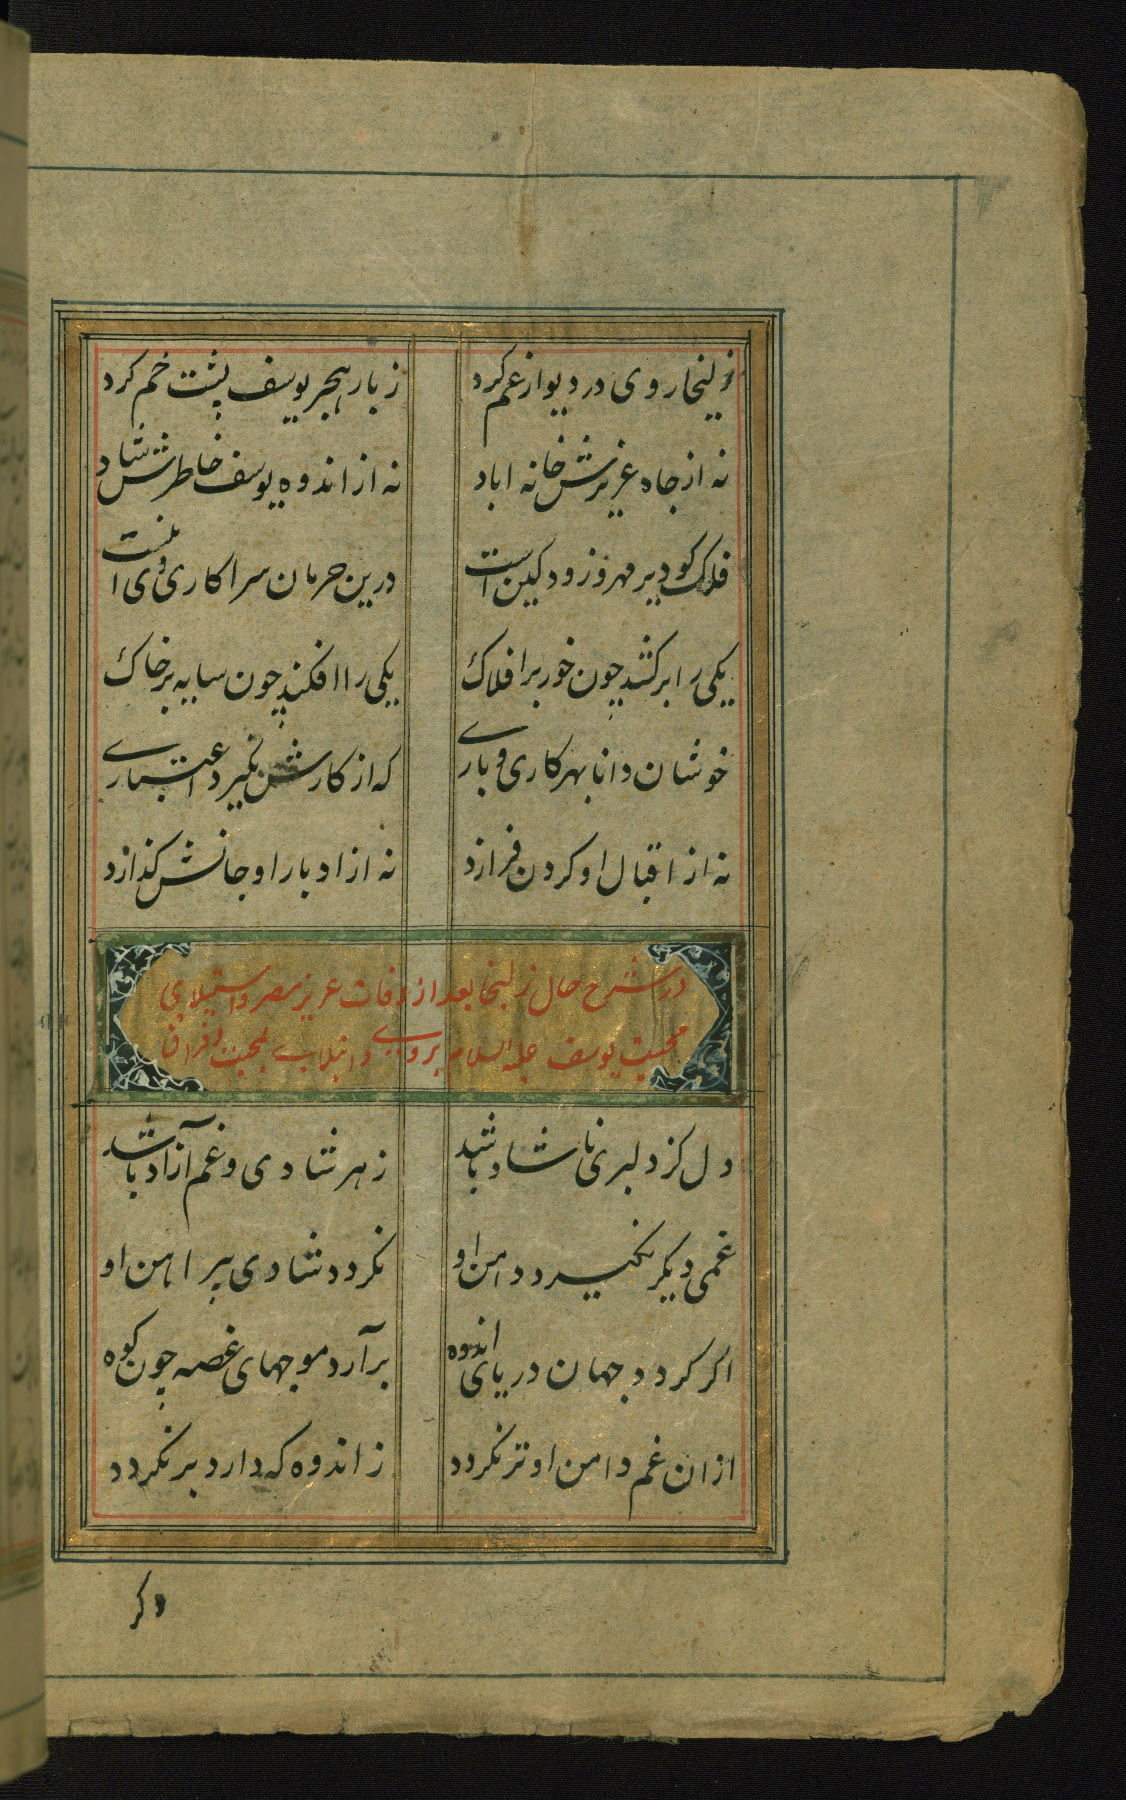 زلیخا روی در دیوار غم کرد ز بار هجر یوسف پشت خم کرد
نه از جاه عزیزش خانه اباد نه از اندوه یوسف خاطرش شاد
فلک کو دیر مهر و زود کین است درین حرمان سرا کار وی اینست
یکی را برکشد چون خور بر افلاک یکی را افکند چون سایه بر خاک
خوش آن دانا بهر کاری و باری که از کارش نگیرد اعتباری
نه از اقبال او کردن فرازد نه از ادبار او جانش کدازد
در شرح حال زلیخا بعد از وفات عزیز مصر و استیلای
محبت یوسف علیه السلام بر وی و ابتلای بمحبت و فراق
دل کز دلبری ناشاد باشد ز هر شادی و غم آزاد باشد
غمی دیکر نکیرد دامن او نکردد شادی پیرامن او
اکر کردد جهان دریای اندوه برآرد موجهای غصه چون کوه
از ان غم دامن او تر نکردد ز اندوه که دارد بر نکردد
وکر